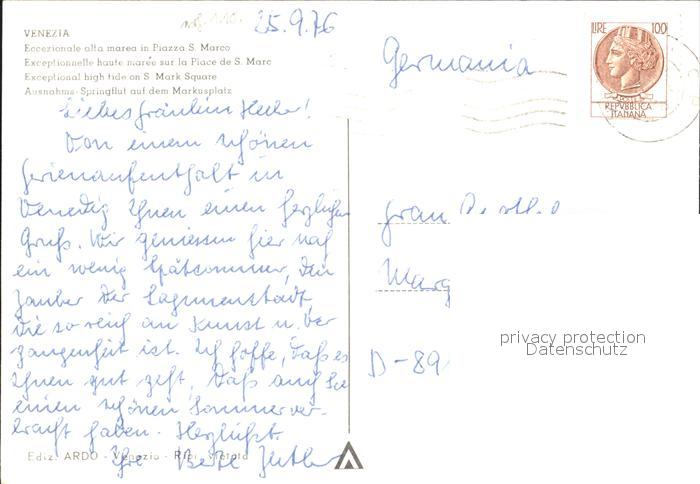 25.9.76
VENEZIA
Eccezionale alta marea in Piazza S. Marco
Exceptionnelle haute marée sur la Place de S. Marc
Exceptional high tide on S. Mark Square
Ausnahms-Springflut auf dem Markusplatz
Liebes Fräulein
Von einem schönen
Ferienaufenthalt in
Venedig Ihnen einen herzlichen
Gruß. Wir geniessen hier noch
ein wenig Spätsommer, den
Zauber der Lagunenstadt,
die so reich an Kunst u. Ver
gangenheit ist. Ich hoffe, daß es
Ihnen gut geht, daß auch Sie
einen schönen Sommer ver-
bracht haben. Herzlichst
Ihre
Ediz. ARDO - Venezia - Ripr. vietata
Germania
LIRE 100
REPVBBLICA
ITALIANA
Frau
Marg
D-89
privacy protection
Datenschutz